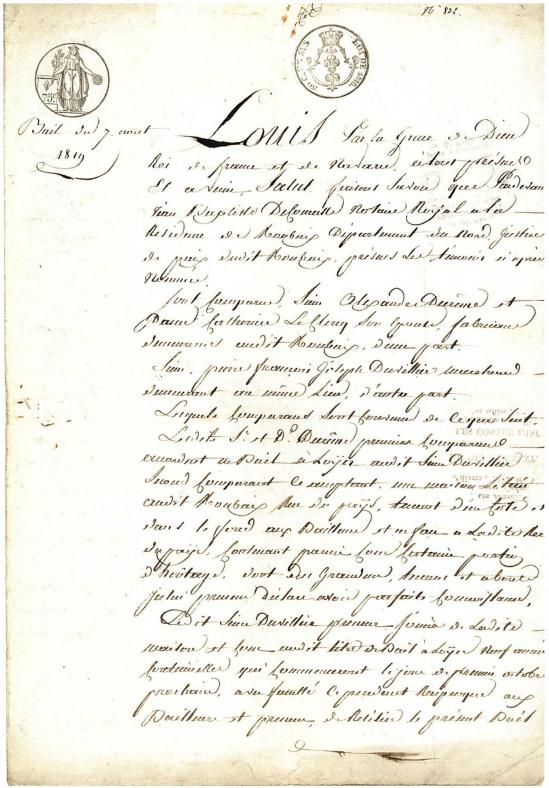 Bail du 7 aout
1819
Louis Par la Grace de Dieu
Roi de france et de Navarre, a tous presens
Et a venir, Salut, faisons Savoir que Pardevant
Jean Baptiste DeCottignie Notaire Royal a la
Residence de Roubaix Département du Nord, Justice
de paix dudit Roubaix, présens Les temoins ci après
Nommés.
Sont Comparus, Sieur Alexandre Durême et
Dame Catherine LeClercq Son épouse, fabricans
demeurans audit Roubaix, d'une part.
Sieur pierre françois Joseph Duvillier marchand
demeurant au même Lieu, d'autre part.
Lesquels Comparans Sont Convenus de Ce qui Suit.
Lesdits Sr. et De. Durême premiers Comparans
accordent a Bail à Loyer audit Sieur Duvillier
Second Comparant Ce acceptant, une maison située
audit Roubaix Rue du pays, tenant d'un Coté et
dans le fond aux Bailleurs et en face a Ladite Rue
du pays, Contenant parmi Cour Certaine portion
d'héritage, dont des Grandeur, tenans et aboutissans
Ledit preneur déclare avoir parfaite Connaissance,
Ledit Sieur Duvillier preneur Jouira de Ladite
maison et Cour audit titre de Bail à Loyer Neuf années
Continuelles qui Commenceront le jour de premier octobre
prochain, avec faculté Cependant Réciproque aux
Bailleurs et preneur, de Résilier le présent Bail